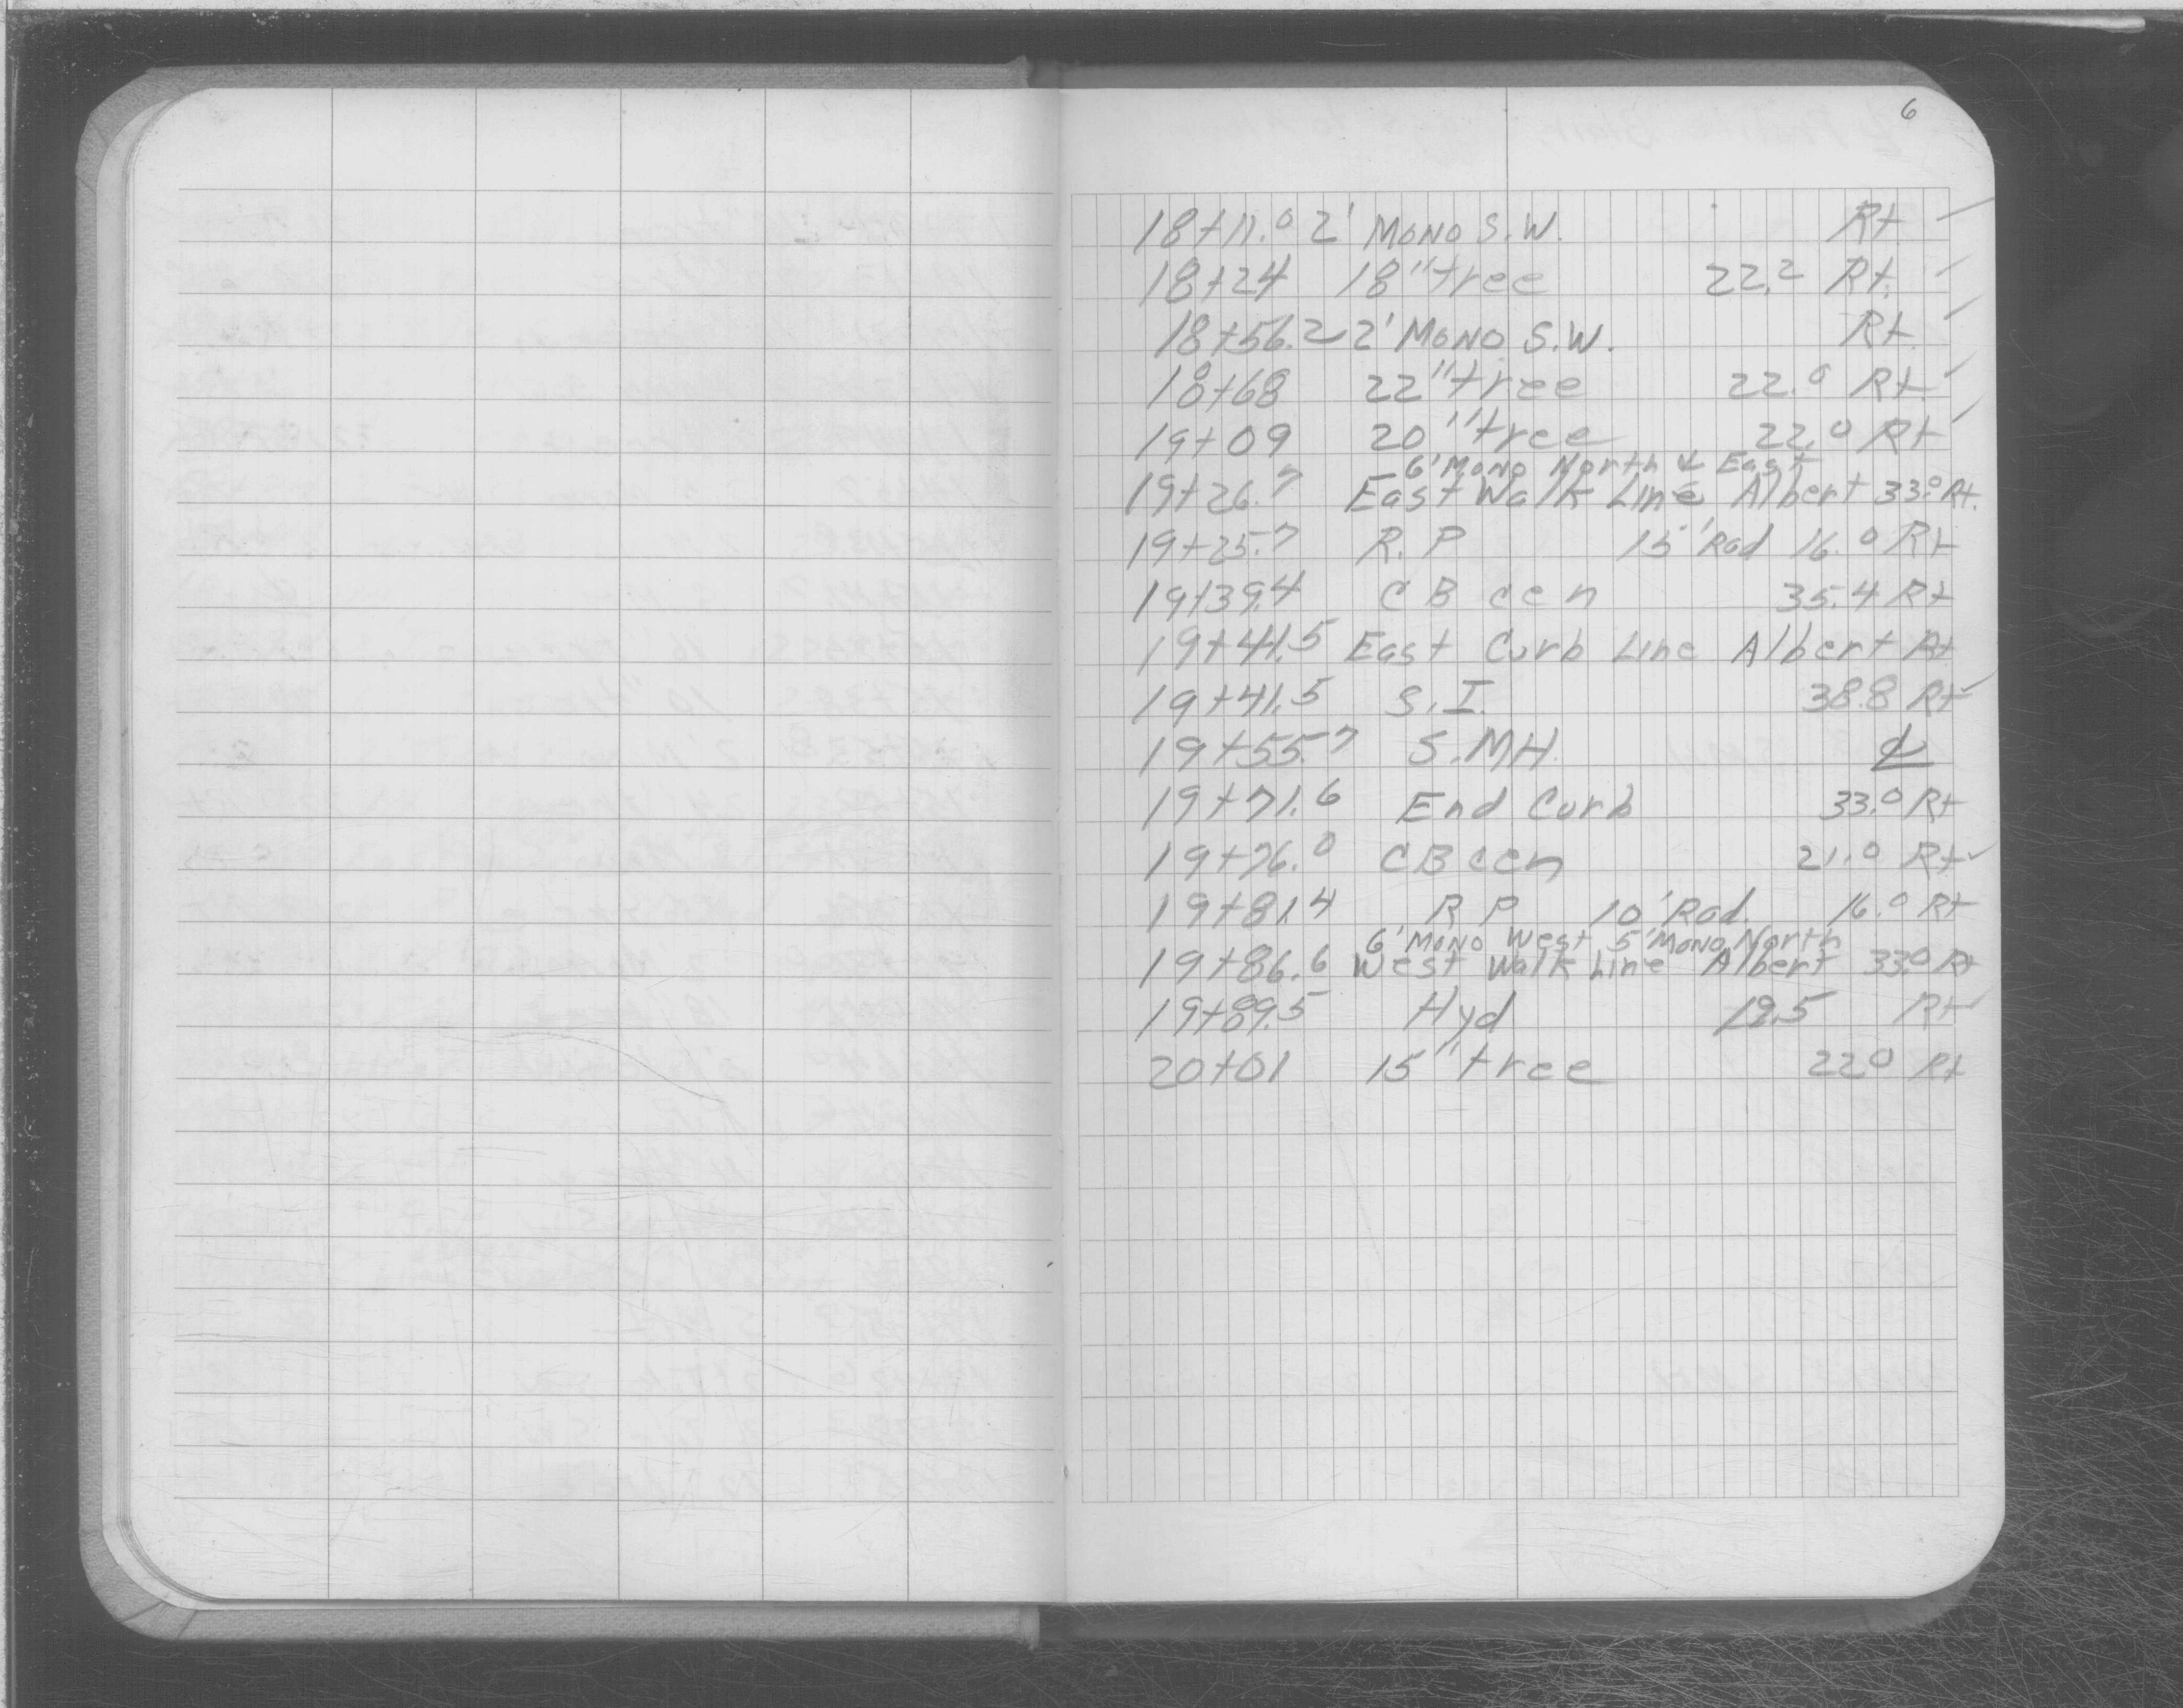 6
18+11.0 2' MONO S.W. Rt.
18+24 18" tree 22.2 Rt.
18+56.2 2' MONO S.W. Rt.
18+68 22" tree 22.0 Rt.
19+09 20" tree 22.0 Rt
6' MONO North & East
19+26.7 East Walk Line Albert 33.0 Rt.
19+25.7 R.P 15' Rad 16.0 Rt
19+39.4 CB cen 35.4 Rt
19+41.5 East Curb Line Albert Rt
19+41.5 S.I. 38.8 Rt
19+55.7 S.MH. ℄
19+71.6 End Curb 33.0 Rt
19+76.0 CB cen 21.0 Rt
19+81.4 R P 10' Rad. 16.0 Rt
6' MONO West 5' MONO North
19+86.6 West Walk Line Albert 33.0 Rt
19+89.5 Hyd Rt
20+01 15" tree 22.0 Rt